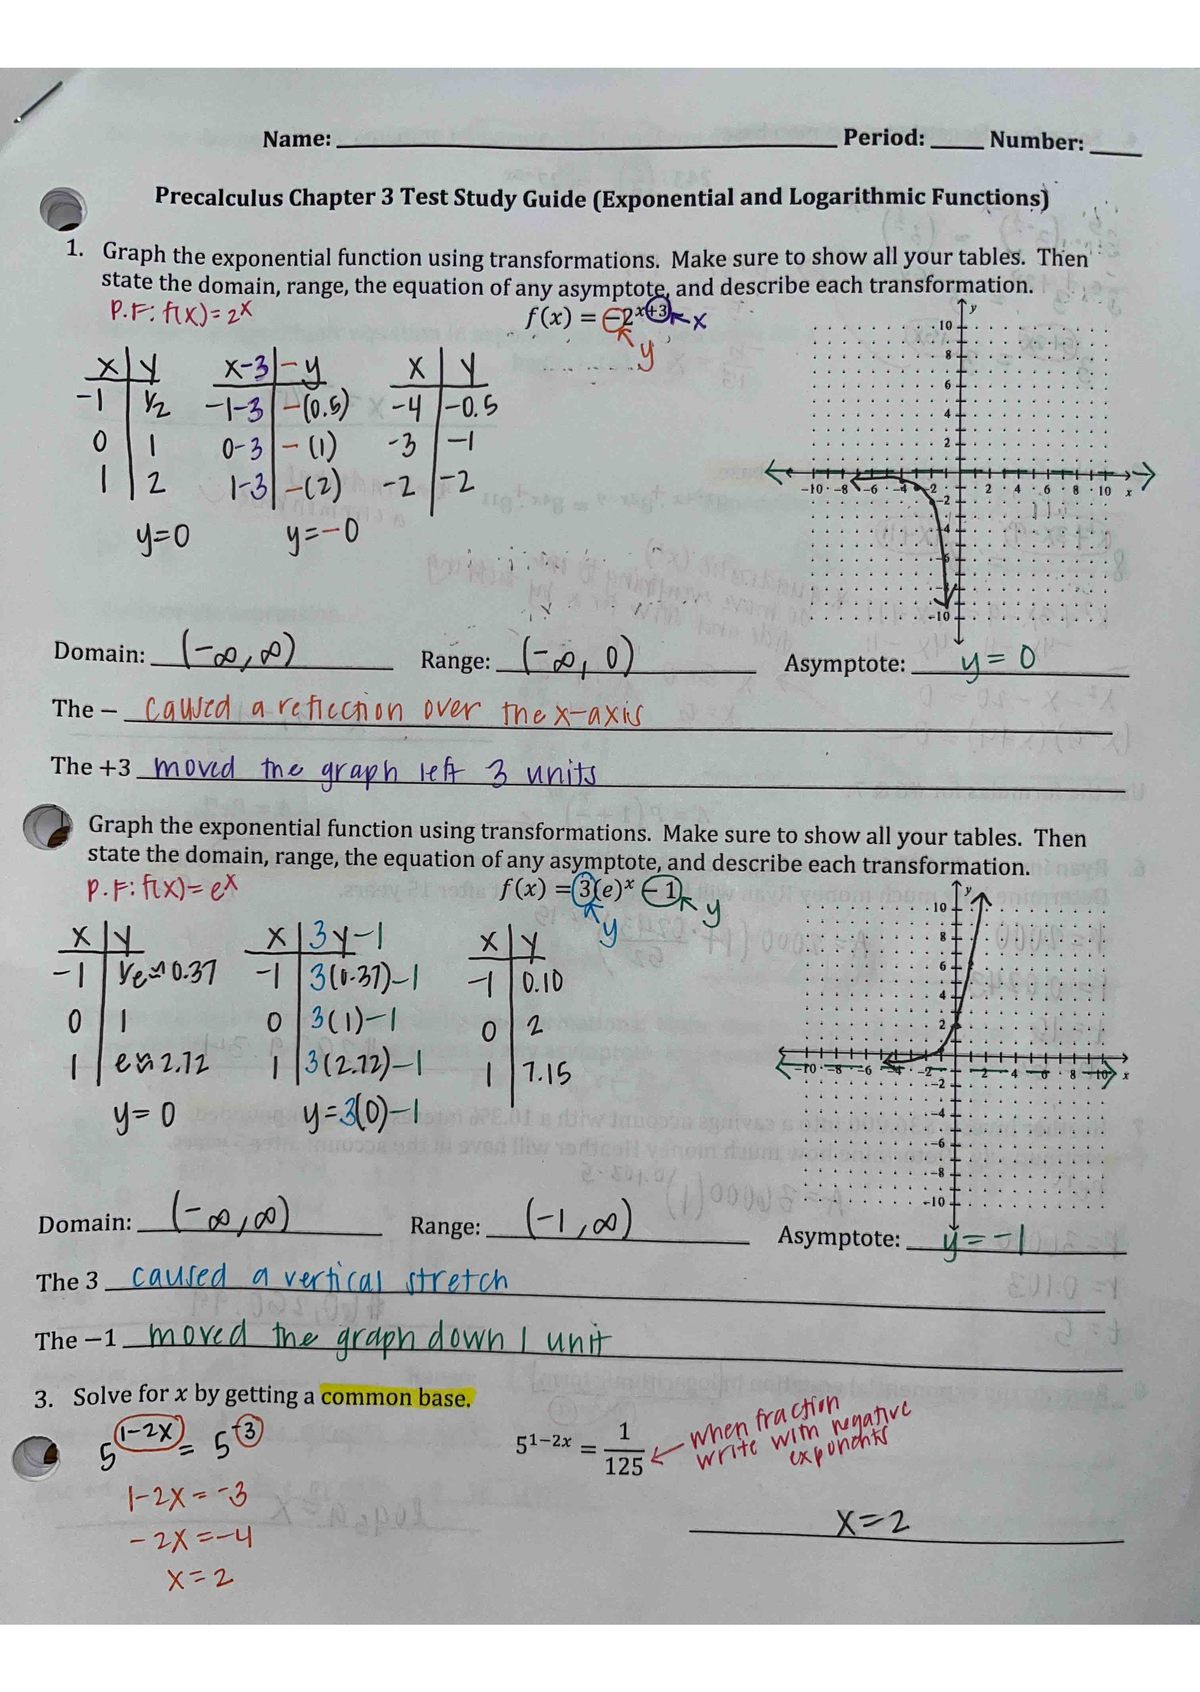 Name: Period: Number:
Precalculus Chapter 3 Test Study Guide (Exponential and Logarithmic Functions)
1. Graph the exponential function using transformations. Make sure to show all your tables. Then
state the domain, range, the equation of any asymptote, and describe each transformation.
P.F: f(x)= 2ˣ f(x) = −2ˣ⁺³ x
y
x y x-3 -y x y
-1 1/2 -1-3 -(0.5) -4 -0.5
0 1 0-3 -(1) -3 -1
1 2 1-3 -(2) -2 -2
y=0 y=-0
y
10
8
6
4
2
-10 -8 -6 -4 -2 2 4 6 8 10 x
-2
-4
-6
-10
Domain: (-∞,∞) Range: (-∞, 0) Asymptote: y=0
The − caused a reflection over the x-axis
The +3 moved the graph left 3 units
Graph the exponential function using transformations. Make sure to show all your tables. Then
state the domain, range, the equation of any asymptote, and describe each transformation.
P.F: f(x)= eˣ f(x) = 3(e)ˣ − 1 y
y
x y x 3y-1 x y
-1 1/e≈0.37 -1 3(0.37)-1 -1 0.10
0 1 0 3(1)-1 0 2
1 e≈2.72 1 3(2.72)-1 1 7.15
y=0 y=3(0)-1
y
10
8
6
4
2
-10 -8 -6 -4 -2 2 4 6 8 10 x
-2
-4
-6
-8
-10
Domain: (-∞,∞) Range: (-1,∞) Asymptote: y=-1
The 3 caused a vertical stretch
The −1 moved the graph down 1 unit
3. Solve for x by getting a common base.
5¹⁻²ˣ = 5⁻³ 5¹⁻²ˣ = 1/125 when fraction
write with negative
exponents
1-2x=-3
-2x=-4
x=2
x=2